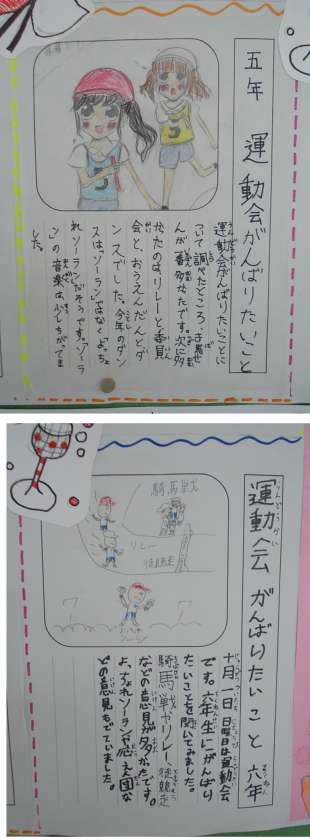 五年 運動会がんばりたいこと
運動会がんばりたいことに
ついて調べたところ、き馬せ
んが一番多かったです。次に多
かったのは、リレーと委員
会と、おうえんだんとダ
ンスでした。今年のダン
スは「ソーラン」ではなく「よっちょ
れソーラン」だそうです。「ソーラ
ン」の音楽は少しちがってま
した。
「運動会 がんばりたいこと 六年
騎馬戦
リレー
徒競走
ワー
ワー
十月一日、日曜日は運動会
です。六年生にがんばり
たいことを聞いてみました。
騎馬戦やリレー、徒競走
などの意見が多かったです。
よっちょれソーランや応えん団な
どの意見もでていました。